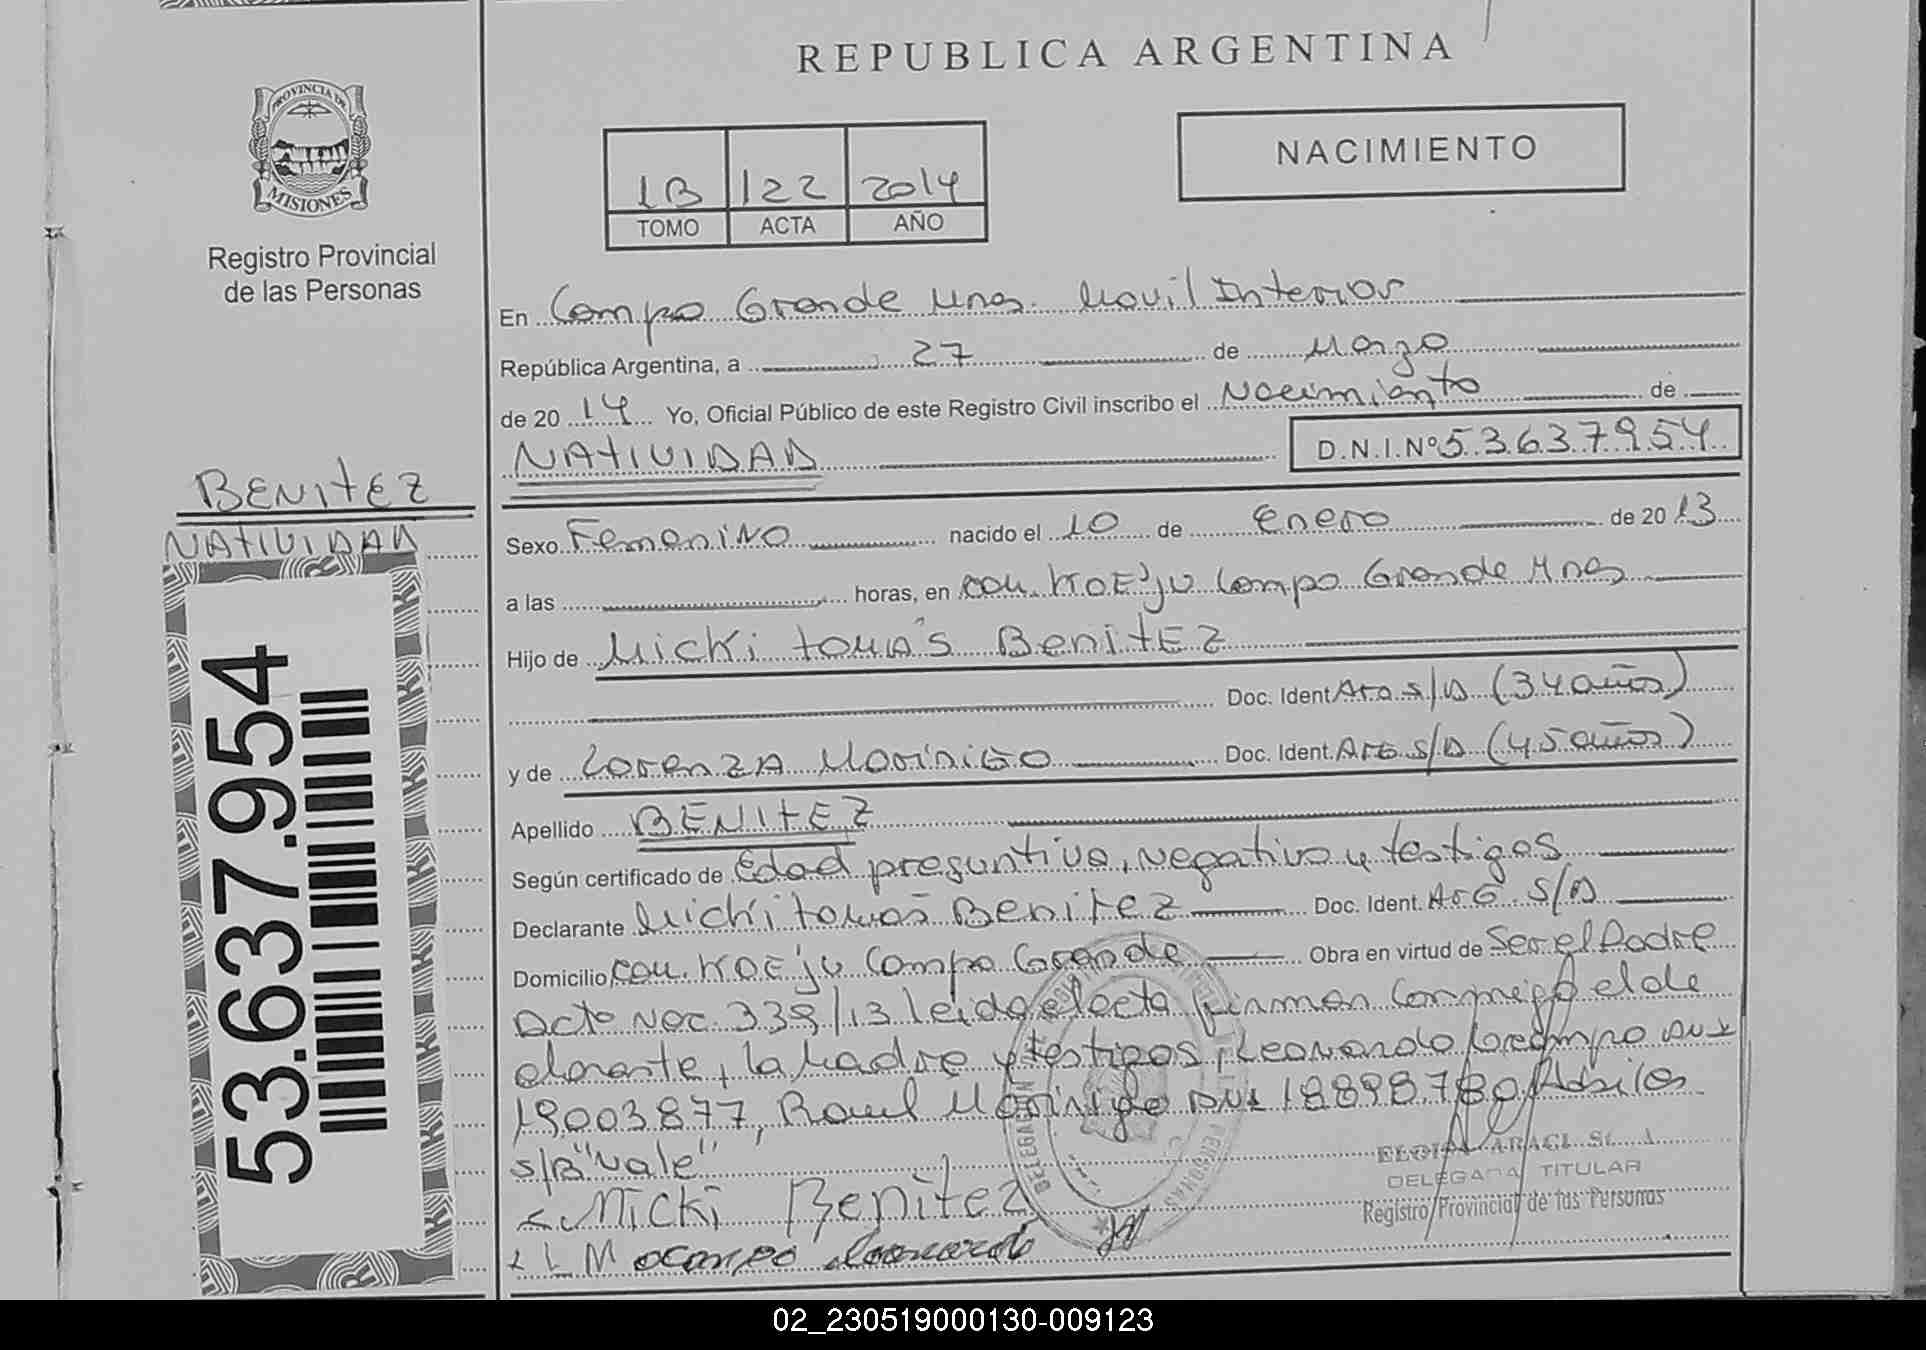 REPUBLICA ARGENTINA
PROVINCIA DE
MISIONES
Registro Provincial
de las Personas
NACIMIENTO
1B 122 2014
TOMO ACTA AÑO
En Campo Grande Mnes. Movil Interior
República Argentina, a 27 de Marzo
de 20 14 Yo, Oficial Público de este Registro Civil inscribo el Nacimiento de
NATIVIDAD
D.N.I.Nº 53637954
BENITEZ
NATIVIDAD
53.637.954
Sexo Femenino nacido el 10 de Enero de 20 13
a las horas, en Com. KOE'ju Campo Grande Mnes
Hijo de Micki tomás BenitEZ
Doc. Ident Arg. S/D (34 años)
y de LorenZA Moriñigo Doc. Ident. Arg S/D (45 años)
Apellido BENITEZ
Según certificado de Edad presuntiva, Negativa y testigos
Declarante Micki tomas Benitez Doc. Ident. Arg. S/D
Domicilio Com. KOE'ju Campo Grande Obra en virtud de Ser el Padre
Acta Nac. 339/13 leida el acta firman Conmigo el de
clarante, la Madre y testigos, Leonardo Ocampo DNI
19003877, Raul Moriñigo DNI 18898780
S/B "Vale"
Micki Benitez
L M ocampo Leonardo
DELEGADA TITULAR
Registro Provincial de las Personas
02_230519000130-009123